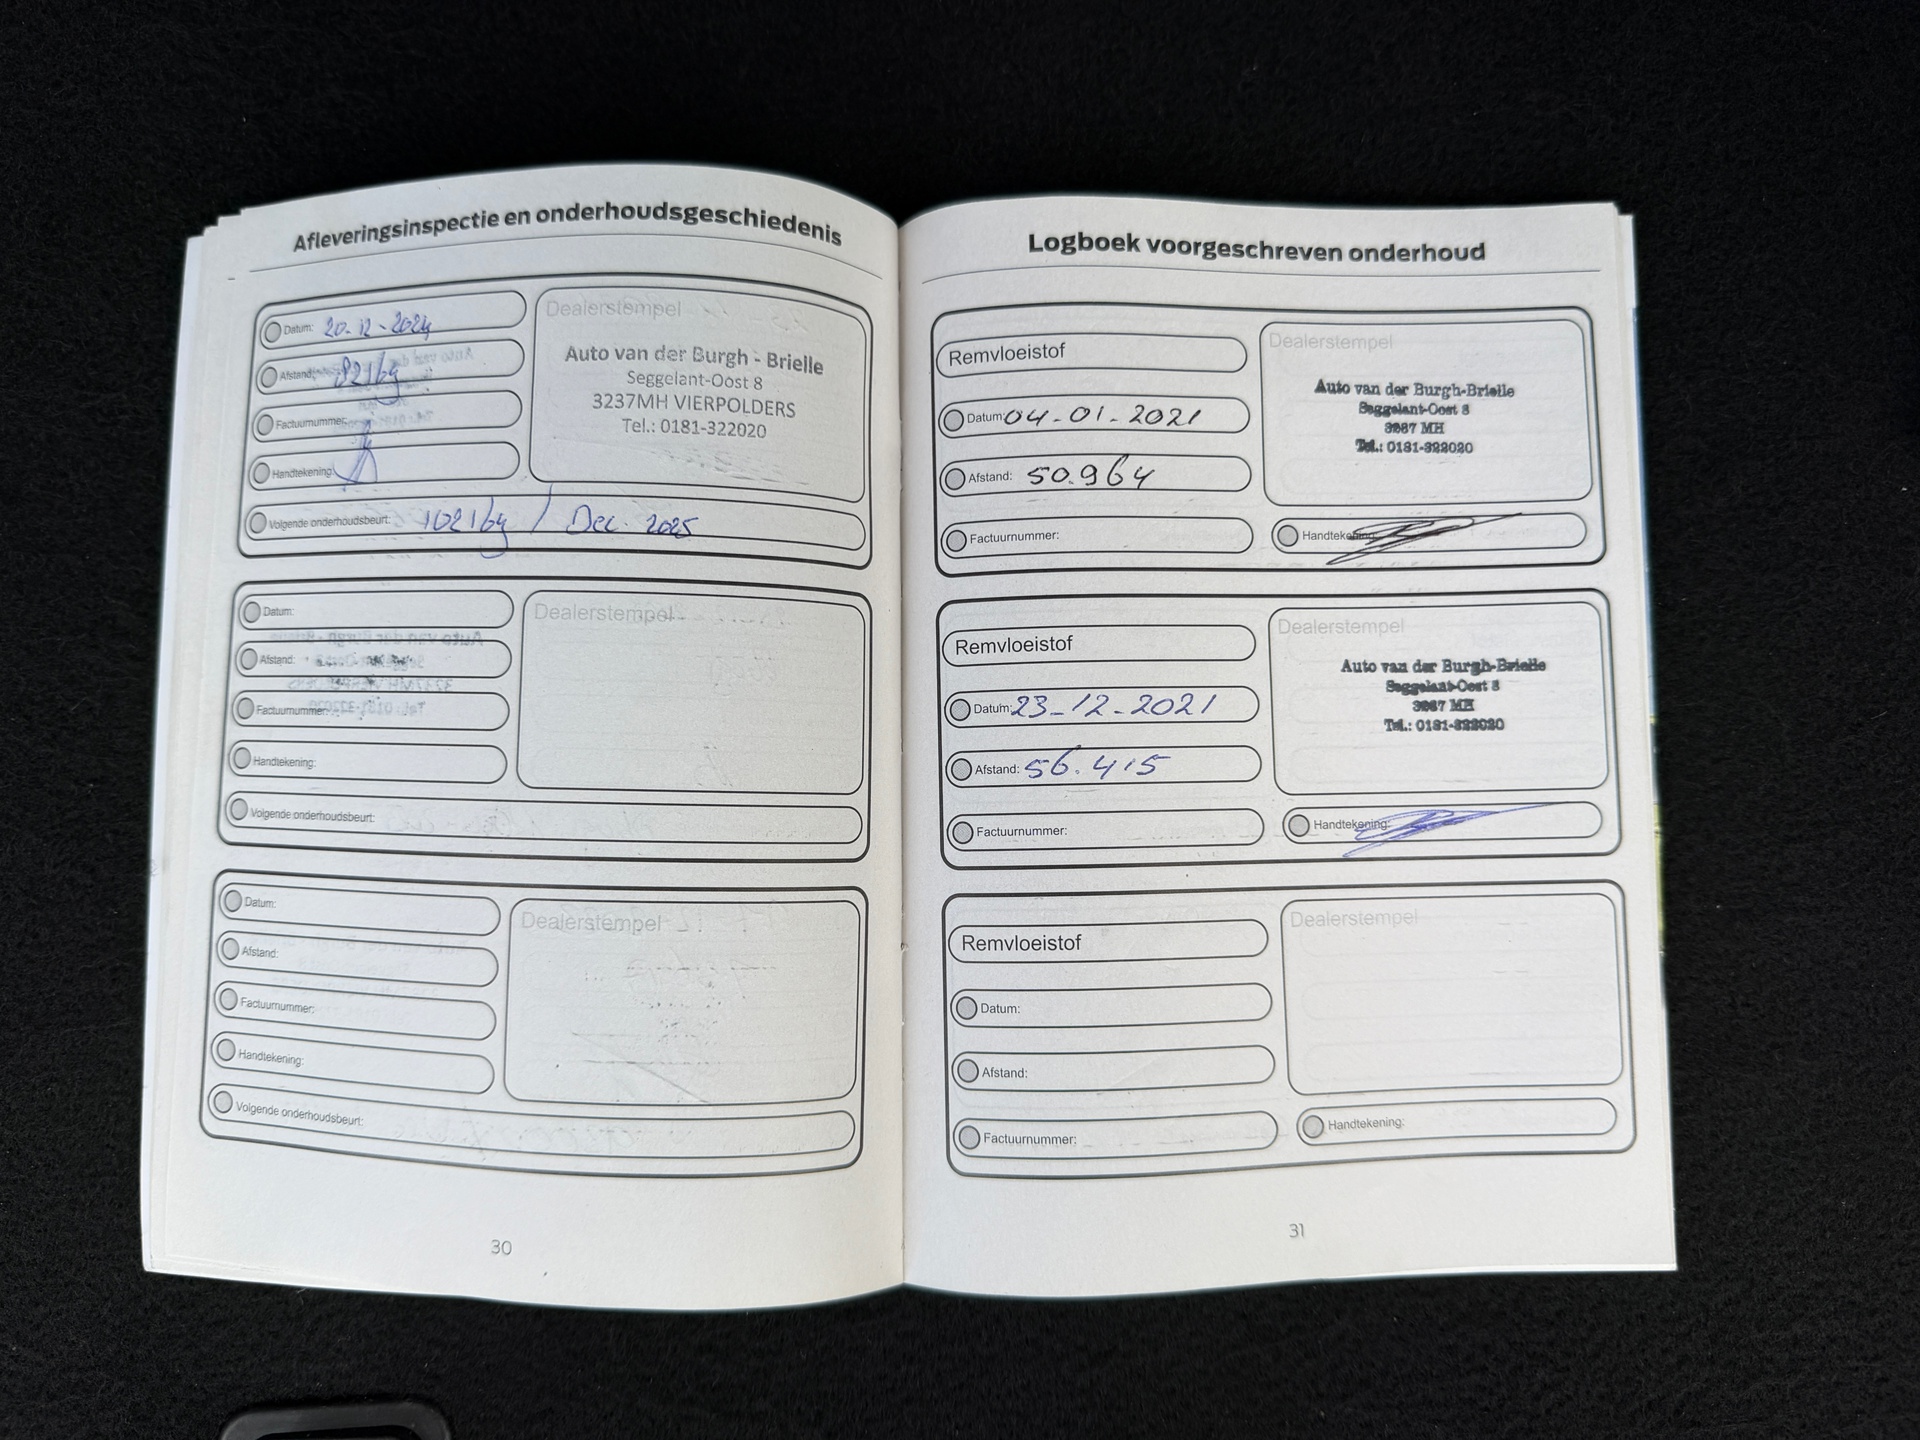 Afleveringsinspectie en onderhoudsgeschiedenis
Datum: 20-12-2024
Afstand: 82164
Factuurnummer:
Handtekening:
Dealerstempel
Auto van der Burgh - Brielle
Seggelant-Oost 8
3237MH VIERPOLDERS
Tel.: 0181-322020
Volgende onderhoudsbeurt: 102164 / Dec. 2025
Datum:
Afstand:
Factuurnummer:
Handtekening:
Dealerstempel
Volgende onderhoudsbeurt:
Datum:
Afstand:
Factuurnummer:
Handtekening:
Dealerstempel
Volgende onderhoudsbeurt:
30
Logboek voorgeschreven onderhoud
Remvloeistof
Datum: 04-01-2021
Afstand: 50.964
Factuurnummer:
Dealerstempel
Auto van der Burgh-Brielle
Seggelant-Oost 8
MH
Tel.: 0181-322020
Handtekening:
Remvloeistof
Datum: 23-12-2021
Afstand: 56.415
Factuurnummer:
Dealerstempel
Auto van der Burgh-Brielle
Seggelant-Oost 8
MH
Tel.: 0181-322020
Handtekening:
Remvloeistof
Datum:
Afstand:
Factuurnummer:
Dealerstempel
Handtekening:
31